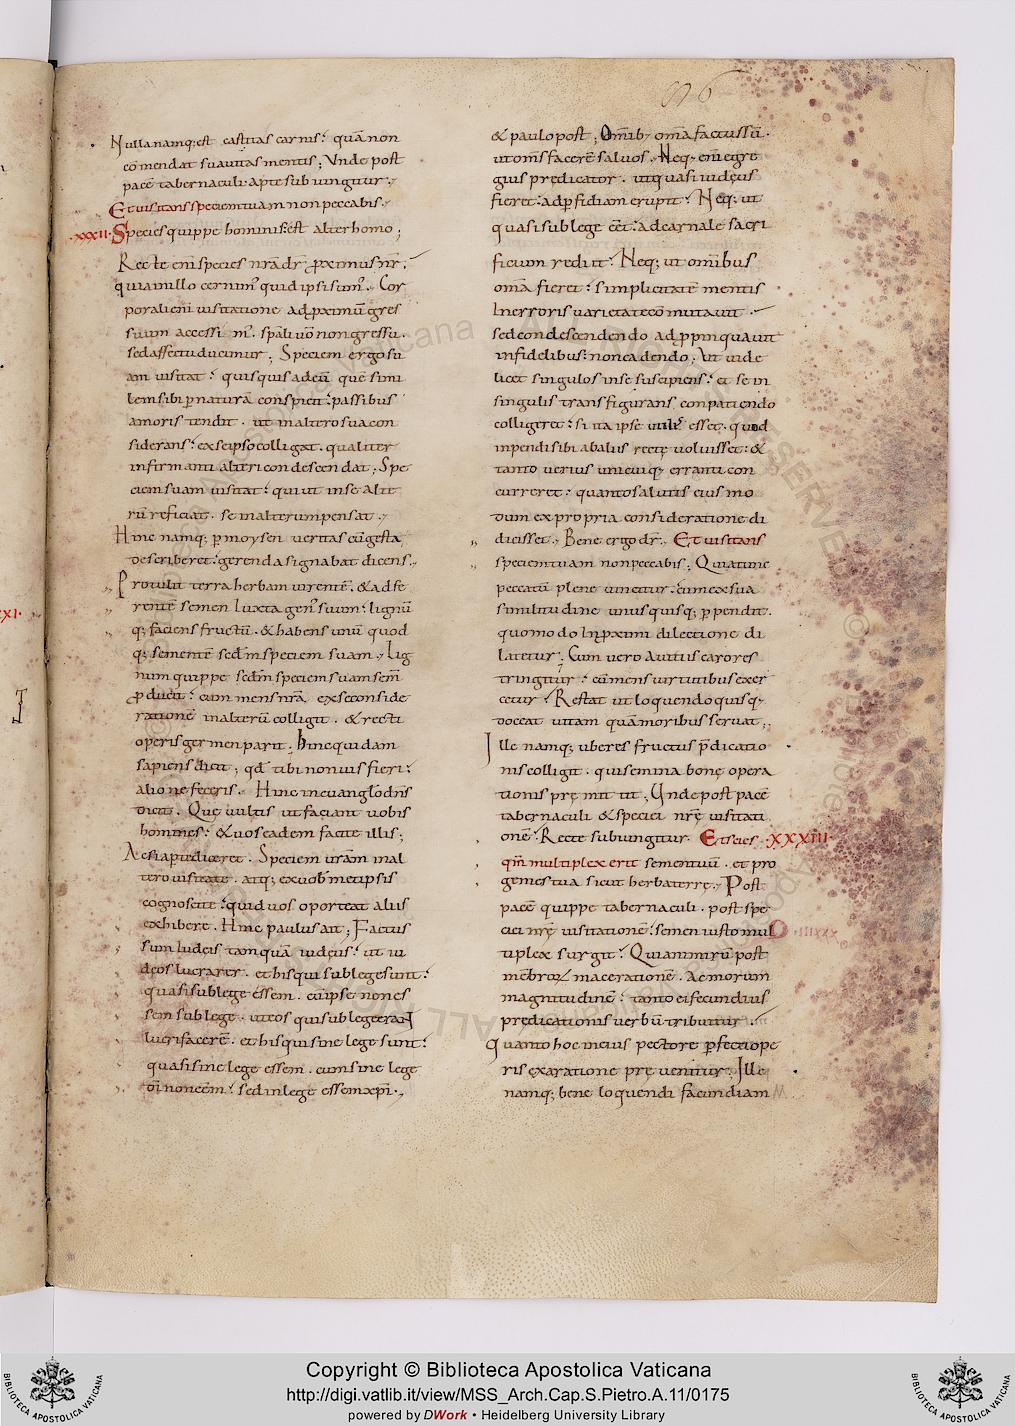 96
Nulla namq; est castitas carnis? quā non
cōmendat suauitas mentis; Vnde post
pacē tabernaculi. apte subiungitur;
Et uisitans speciem tuam non peccabis;
xxxii. Species quippe hominis: est alter homo;
Recte eni species nr̄a dr̄ ꝓximus nr̄.
quia in illo cernimꝰ quid ipsi sumꝰ. Cor
poralieni uisitatione ad ꝓximū gres
suum accessimꝰ. sp̄ali uō non gressu.
sed affectu ducimur; Speciem ergo su
am uisitat? quisquis ad eū quē simi
lem sibi ꝑ naturā conspicit: passibus
amoris tendit. ut in altero sua con
siderans: ex se ipso colligat. qualiter
infirmanti alteri condescendat; Spe
ciem suam uisitat: qui ut in se alte
rū reficiat. se in alterum pensat;
Hinc namq; ꝑ moysen ueritas cū gesta
describeret: gerenda signabat dicens;
Protulit terra herbam uirentē. & adfe
rentē semen Iuxta genꝰ suum: lignū
q; faciens fructū. & habens unū quod
q; sementē scdm̄ speciem suam; Lig
num quippe scdm̄ speciem suam sem̄
ꝓducit: cum mens nr̄a ex se conside
rationē in alterū colligit. & recti
operis germen parit; Hinc quidam
sapiens dicit; qd̄ tibi non uis fieri:
alio ne feceris; Hinc in euanḡlo dn̄s
dicit. Quę uultis ut faciant uobis
homines: & uos eadem facite illis;
Ac si aperte diceret. Speciem urām in al
tero uisitate. atq; ex uob metipsis
cognoscite: quid uos oporteat aliis
exhibere. Hinc paulus ait; Factus
sum Iudeis tamquā iudęus: ut iu
dęos lucrarer. et his qui sub lege sunt:
quasi sub lege essem. cū ipse non es
sem sub lege. ut eos qui sub lege erant
lucrifacerē. et his qui sine lege sunt:
quasi sine lege essem. cum sine lege
dī non eēm: sed in lege essem xp̄i;
& paulo post; Omib; omā factus sū.
ut om̄s facerē saluos; Neq; eni egre
gius prędicator. ut quasi iudęus
fieret: ad ꝑfidiam erupit: Neq; ut
quasi sub lege eēt: ad carnale sacri
ficium rediit: Neq; ut omibus
omā fieret: simplicitatē mentis
In erroris uarietatē cōmutauit.
sed condescendendo adꝓpinquauit
infidelibus: non cadendo; Ut uide
licet singulos in se suscipiens: et se in
singulis transfigurans. conpatiendo
colligeret: si ita ipse utilꝰ esset. quod
inpendi sibi ab aliis rectę uoluisset: &
tanto uerius unicuiq; erranti con
curreret: quanto salutis eius mo
dum ex propria consideratione di
dicisset; Bene ergo dr̄; Et uisitans
speciem tuam non peccabis; Quia tunc
peccatū plene uincitur: cum ex sua
similitudine unusquisq; ꝑpendit.
quomodo In ꝓximi dilectione di
latetur. Cum uero a uitiis caro res
tringitur: cū mens uirtutibus exer
cetur: Restat ut loquendo quisq;
doceat uitam quā moribus seruat;
Ille namq; uberes fructus p̄dicatio
nis colligit. qui semina bonę opera
tionis prę mittit; Unde post pacē
tabernaculi & speciei nrę uisitati
onē. Recte subiungitur. Et scies XXXIII
qm̄ multiplex erit semen tuū. et pro
genies tua sicut herba terrę; Post
pacē quippe tabernaculi. post spe
ciei nrę uisitationē: semen iusto mul
tiplex surgit: Quia nimirū post
mēbroꝝ macerationē. ac morum
magnitudinē: tanto ei fecundius
prędicationis uerbū tribuitur.
Quanto hoc in eius pectore ꝑfectio ope
ris exaratione prę uenitur; Ille
namq; bene loquendi facundiam
Copyright © Biblioteca Apostolica Vaticana
http://digi.vatlib.it/view/MSS_Arch.Cap.S.Pietro.A.11/0175
powered by DWork • Heidelberg University Library
BIBLIOTECA APOSTOLICA VATICANA
BIBLIOTECA APOSTOLICA VATICANA